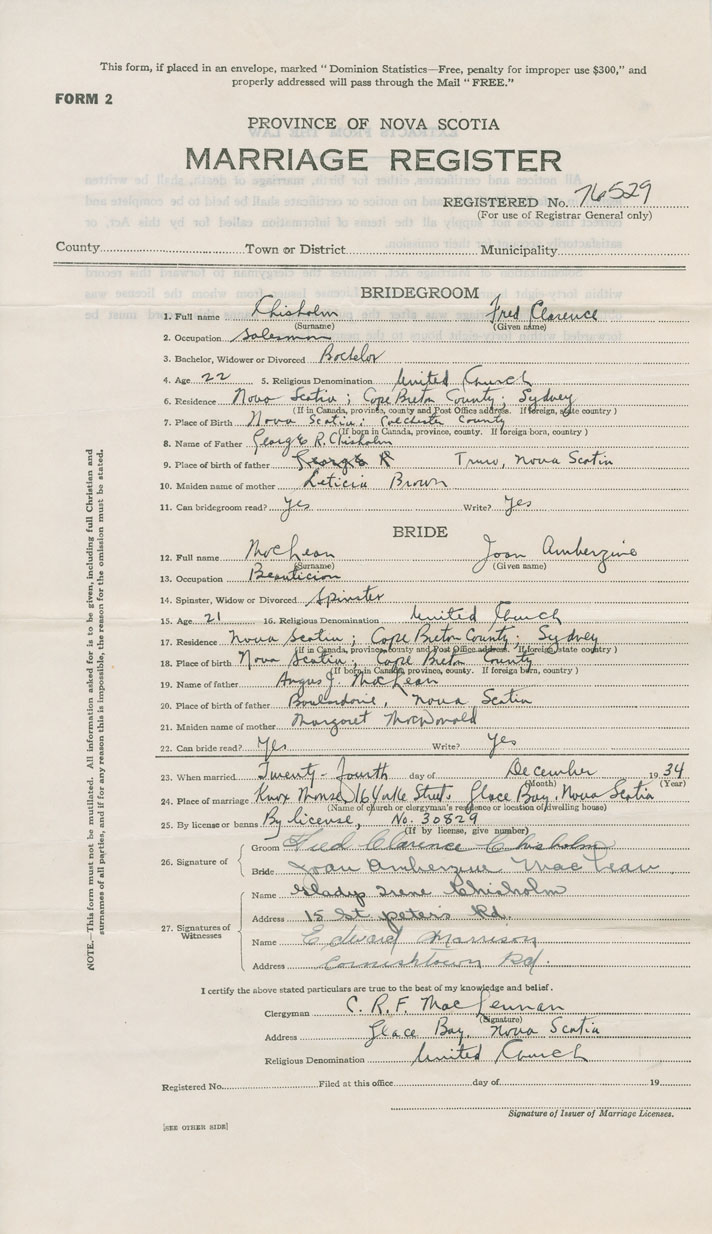 This form, if placed in an envelope, marked "Dominion Statistics—Free, penalty for improper use $300," and
properly addressed will pass through the Mail "FREE."
FORM 2
PROVINCE OF NOVA SCOTIA
MARRIAGE REGISTER
REGISTERED No. 76529
(For use of Registrar General only)
County Town or District Municipality
BRIDEGROOM
1. Full name Chisholm Fred Clarence
(Surname) (Given name)
2. Occupation Salesman
3. Bachelor, Widower or Divorced Bachelor
4. Age 22 5. Religious Denomination United Church
6. Residence Nova Scotia; Cape Breton County; Sydney
(If in Canada, province, county and Post Office address. If foreign, state country)
7. Place of Birth Nova Scotia; Colchester County
(If born in Canada, province, county. If foreign born, country)
8. Name of Father George R. Chisholm
9. Place of birth of father George R Truro, Nova Scotia
10. Maiden name of mother Leticia Brown
11. Can bridegroom read? Yes Write? Yes
BRIDE
12. Full name MacLean Joan Amberzine
(Surname) (Given name)
13. Occupation Beautician
14. Spinster, Widow or Divorced Spinster
15. Age 21 16. Religious Denomination United Church
17. Residence Nova Scotia; Cape Breton County; Sydney
(If in Canada, province, county and Post Office address. If foreign, state country)
18. Place of birth Nova Scotia; Cape Breton County
(If born in Canada, province, county. If foreign born, country)
19. Name of father Angus J. MacLean
20. Place of birth of father Boulardarie, Nova Scotia
21. Maiden name of mother Margaret MacDonald
22. Can bride read? Yes Write? Yes
23. When married Twenty-Fourth day of December 1934
(Month) (Year)
24. Place of marriage Knox Manse, 16 Yorke Street, Glace Bay, Nova Scotia
(Name of church or clergyman's residence or location of dwelling house)
25. By license or banns By license, No. 30829
(If by license, give number)
26. Signature of
Groom Fred Clarence Chisholm
Bride Joan Amberzine MacLean
27. Signatures of Witnesses
Name Gladys Irene Chisholm
Address 15 St. Peter's Rd.
Name Edward Morrison
Address Cornishtown Rd.
I certify the above stated particulars are true to the best of my knowledge and belief.
Clergyman C. R. F. MacLennan
(Signature)
Address Glace Bay, Nova Scotia
Religious Denomination United Church
Registered No. Filed at this office day of 19
Signature of Issuer of Marriage Licenses.
[SEE OTHER SIDE]
NOTE.—This form must not be mutilated. All information asked for is to be given, including full Christian and
surnames of all parties, and if for any reason this is impossible, the reason for the omission must be stated.